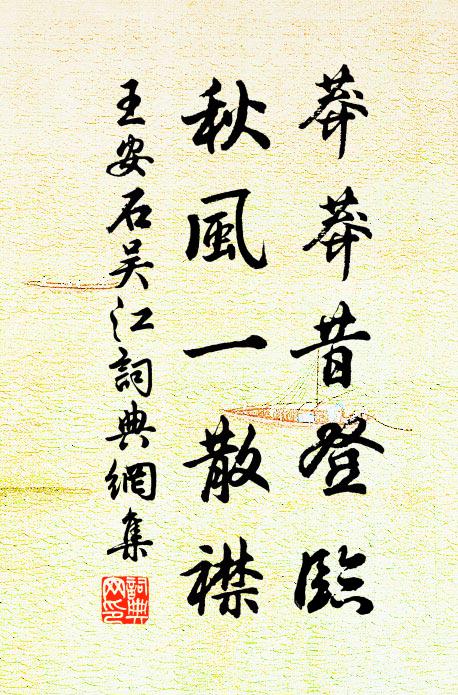 莽莽昔登臨
秋風一散襟
王安石吴江詞典網集
詞典
网印